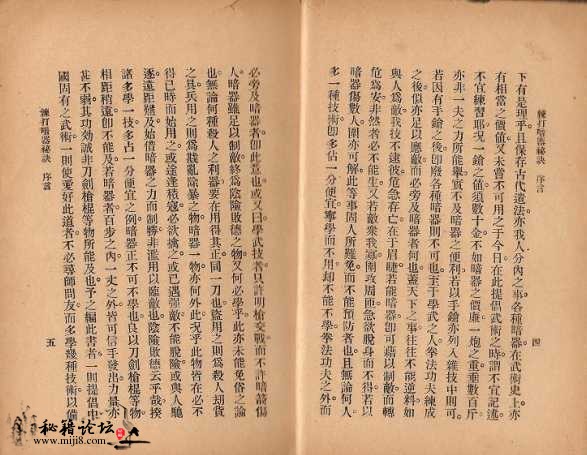 練打暗器秘訣 序言
四
下有是理乎且保存古代遺法亦我人分內之事各種暗器在武術史上亦
有相當之價值又未嘗不可用之于今日在此提倡武術之時謂不宜記述
不宜練習耶况一鎗之值須數十金不如暗器之價廉一炮之重垂數百斤
亦非一夫之力所能舉實不及暗器之便利若以手鎗亦列入雜技中則可
若因有手鎗之後卽廢各種暗器則不可也至于學武之人拳法功夫練成
之後似亦足以應敵而必旁及暗器者何也蓋天下之事往往不能逆料如
與人爲敵我技不速彼危急存亡在于眉睫若能暗器卽可藉以制敵而轉
危爲安非然者必不能生又若敵衆我寡圍攻周匝急欲脫身而不得若以
暗器傷數人圍亦可解此等事固人所難免而不能預防者也且無論何人
多一種技術卽多佔一分便宜寧學而不用却不能不學拳法功夫之外而
必旁及暗器者卽此意也或又曰學武技者只許明槍交戰而不許暗箭傷
人暗器雖足以制敵終爲陰險敗德之物又何必學乎此亦未能免俗之論
也無論何種殺人之利器要在用得其正同一刀也盜用之則爲殺人刧貨
之具兵用之則爲戡亂除暴之物暗器一物亦何外此况乎此物皆在必不
得已時而始用之或途逢積寇必欲擒之或已遇强敵不能脫險或與人馳
逐遠距難及始借暗器之力而制勝非濫用以臨敵也陰險敗德云乎哉揆
諸多學一技多佔一分便宜之例暗器正不可不學也良以刀劍槍棍等物
相距稍遠卽不能及若暗器者百步之內一丈之外皆可信手發出力量亦
甚不弱其功効誠非刀劍槍棍等物所能及也予之編此書者一則提倡中
國固有之武術一則使愛好此道者不必尋師問友而多學幾種技術以備
練打暗器秘訣 序言
五
秘籍论坛
www.miji8.com